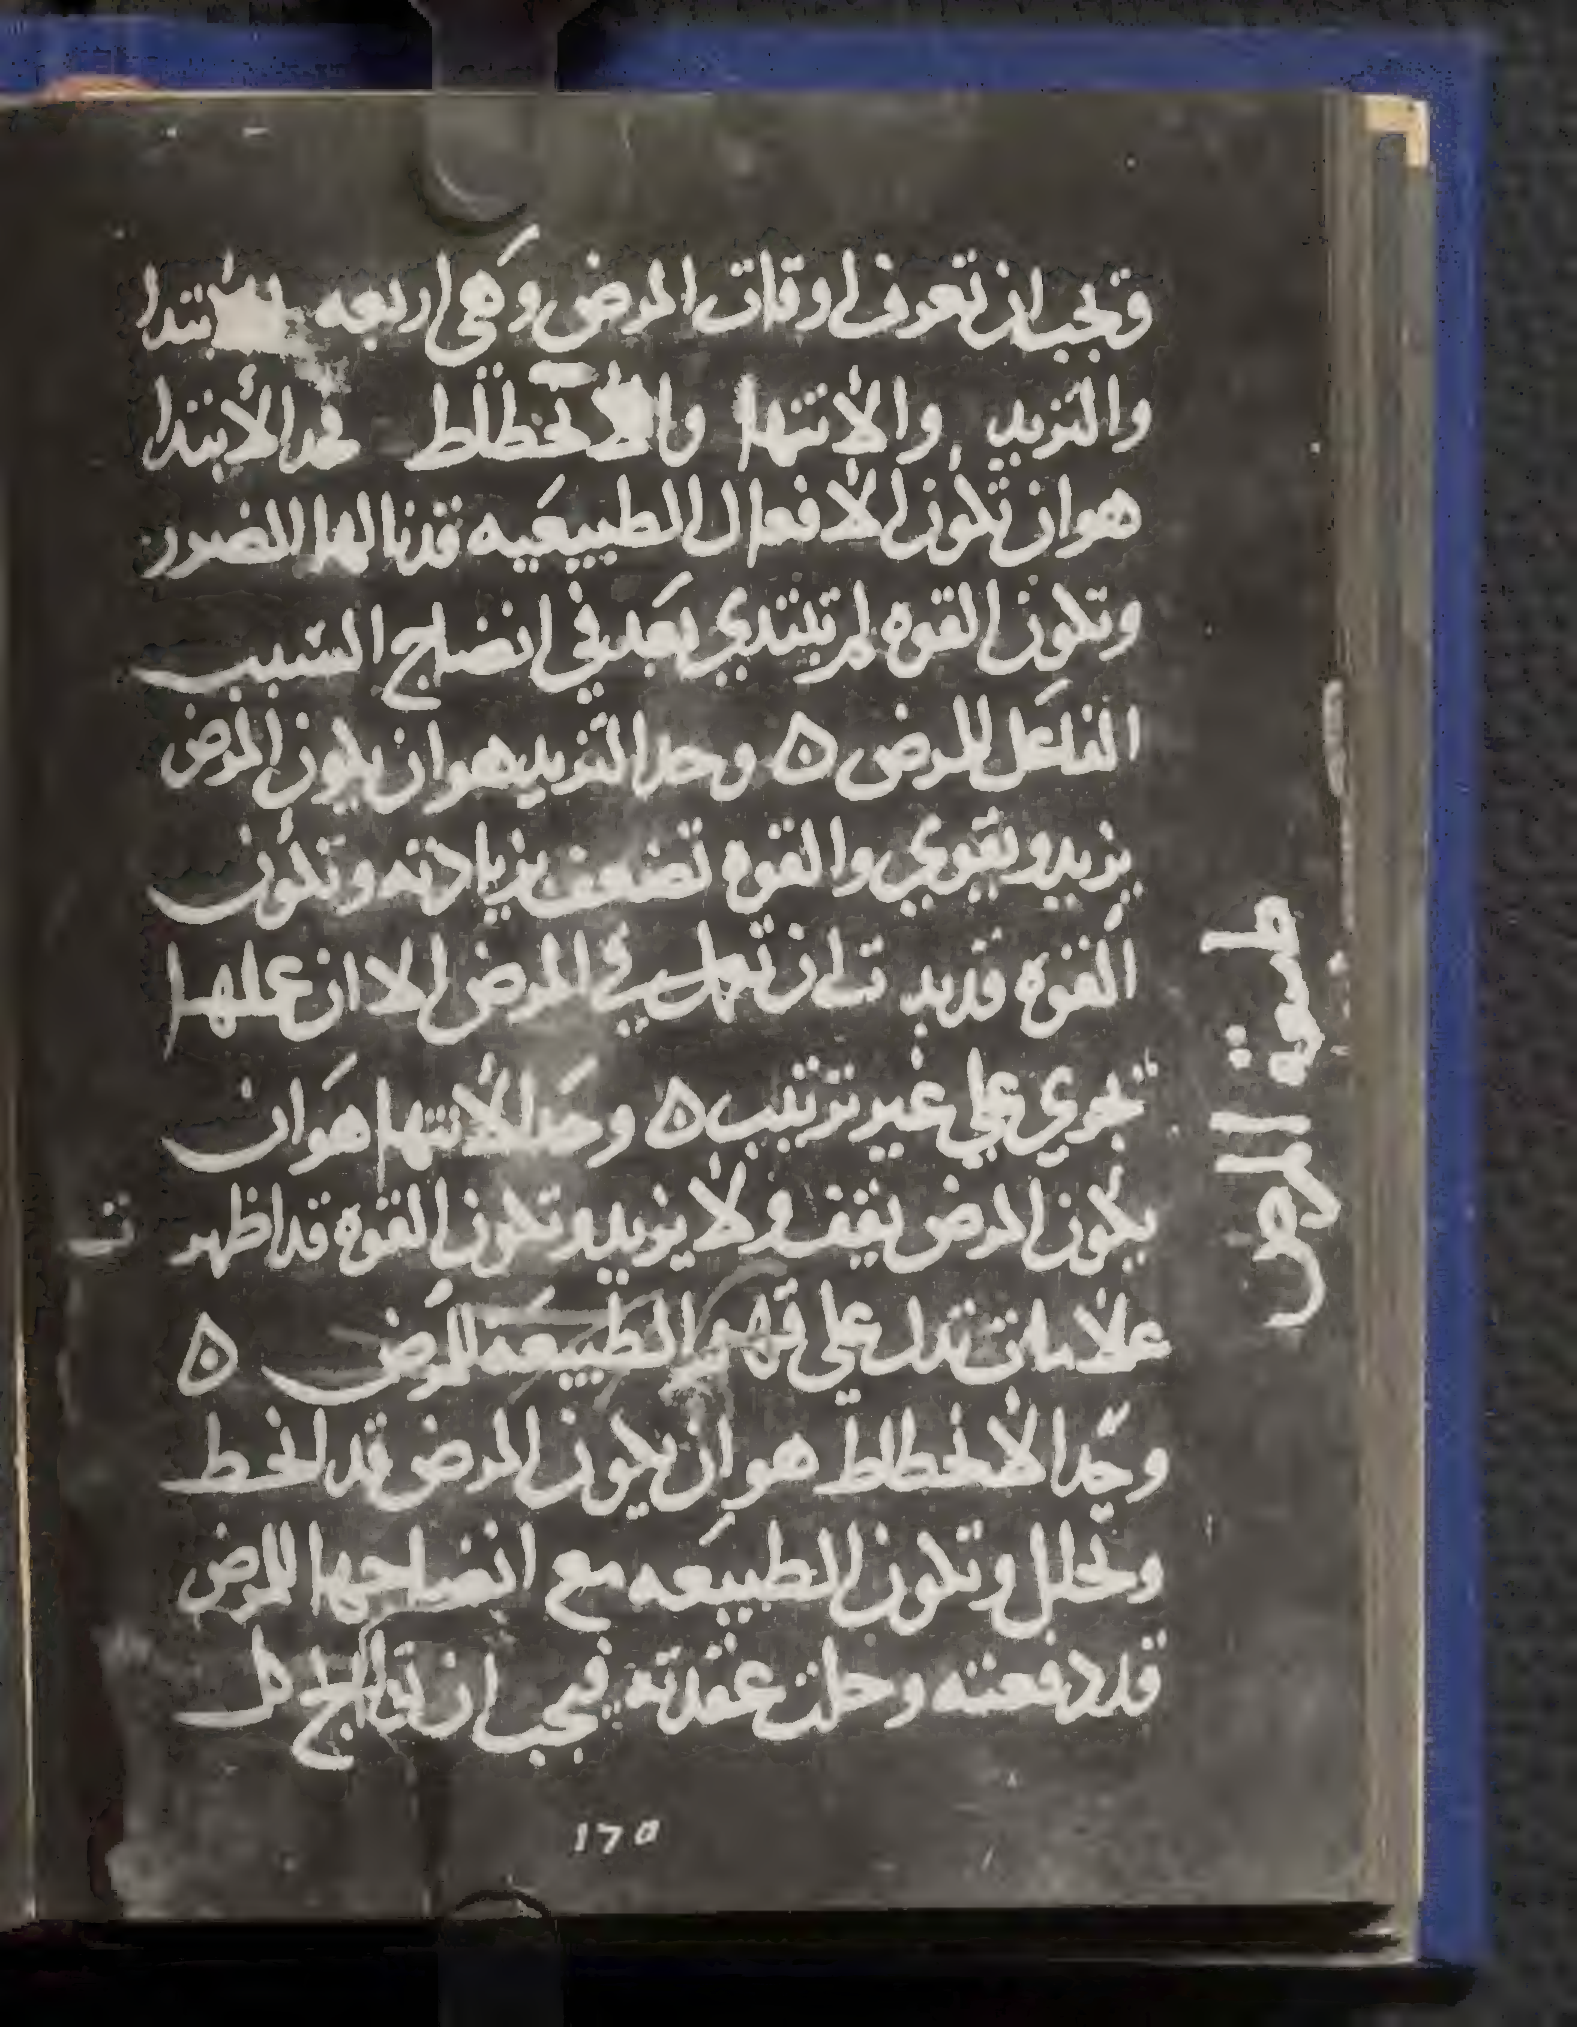 ويجب ان تعرف اوقات المرض وهي اربعه الابتدا
والتزيد والانتها والانحطاط فحد الابتدا
هو ان تكون الافعال الطبيعيه قد نالها الضرر
وتكون القوه لم تبتدي بعد في انضاج السبب
الفاعل للمرض ه وحد التزيد هو ان يكون المرض
يزيد ويقوي والقوه تضعف بزيادته وتكون
القوه قد بدت ان تعمل في المرض الا ان عملها
تجري علي غير ترتيب ه وحد الانتها هو ان
يكون المرض يقف ولا يزيد وتكون القوه قد اظهرت
علامات تدل علي قهر الطبيعة للمرض ه
وحد الانحطاط هو ان يكون المرض قد انحط
وتحلل وتكون الطبيعه مع انضاجها للمرض
قد دفعته وحلت عقدته فيجب ان تعالج كل
١٦٥